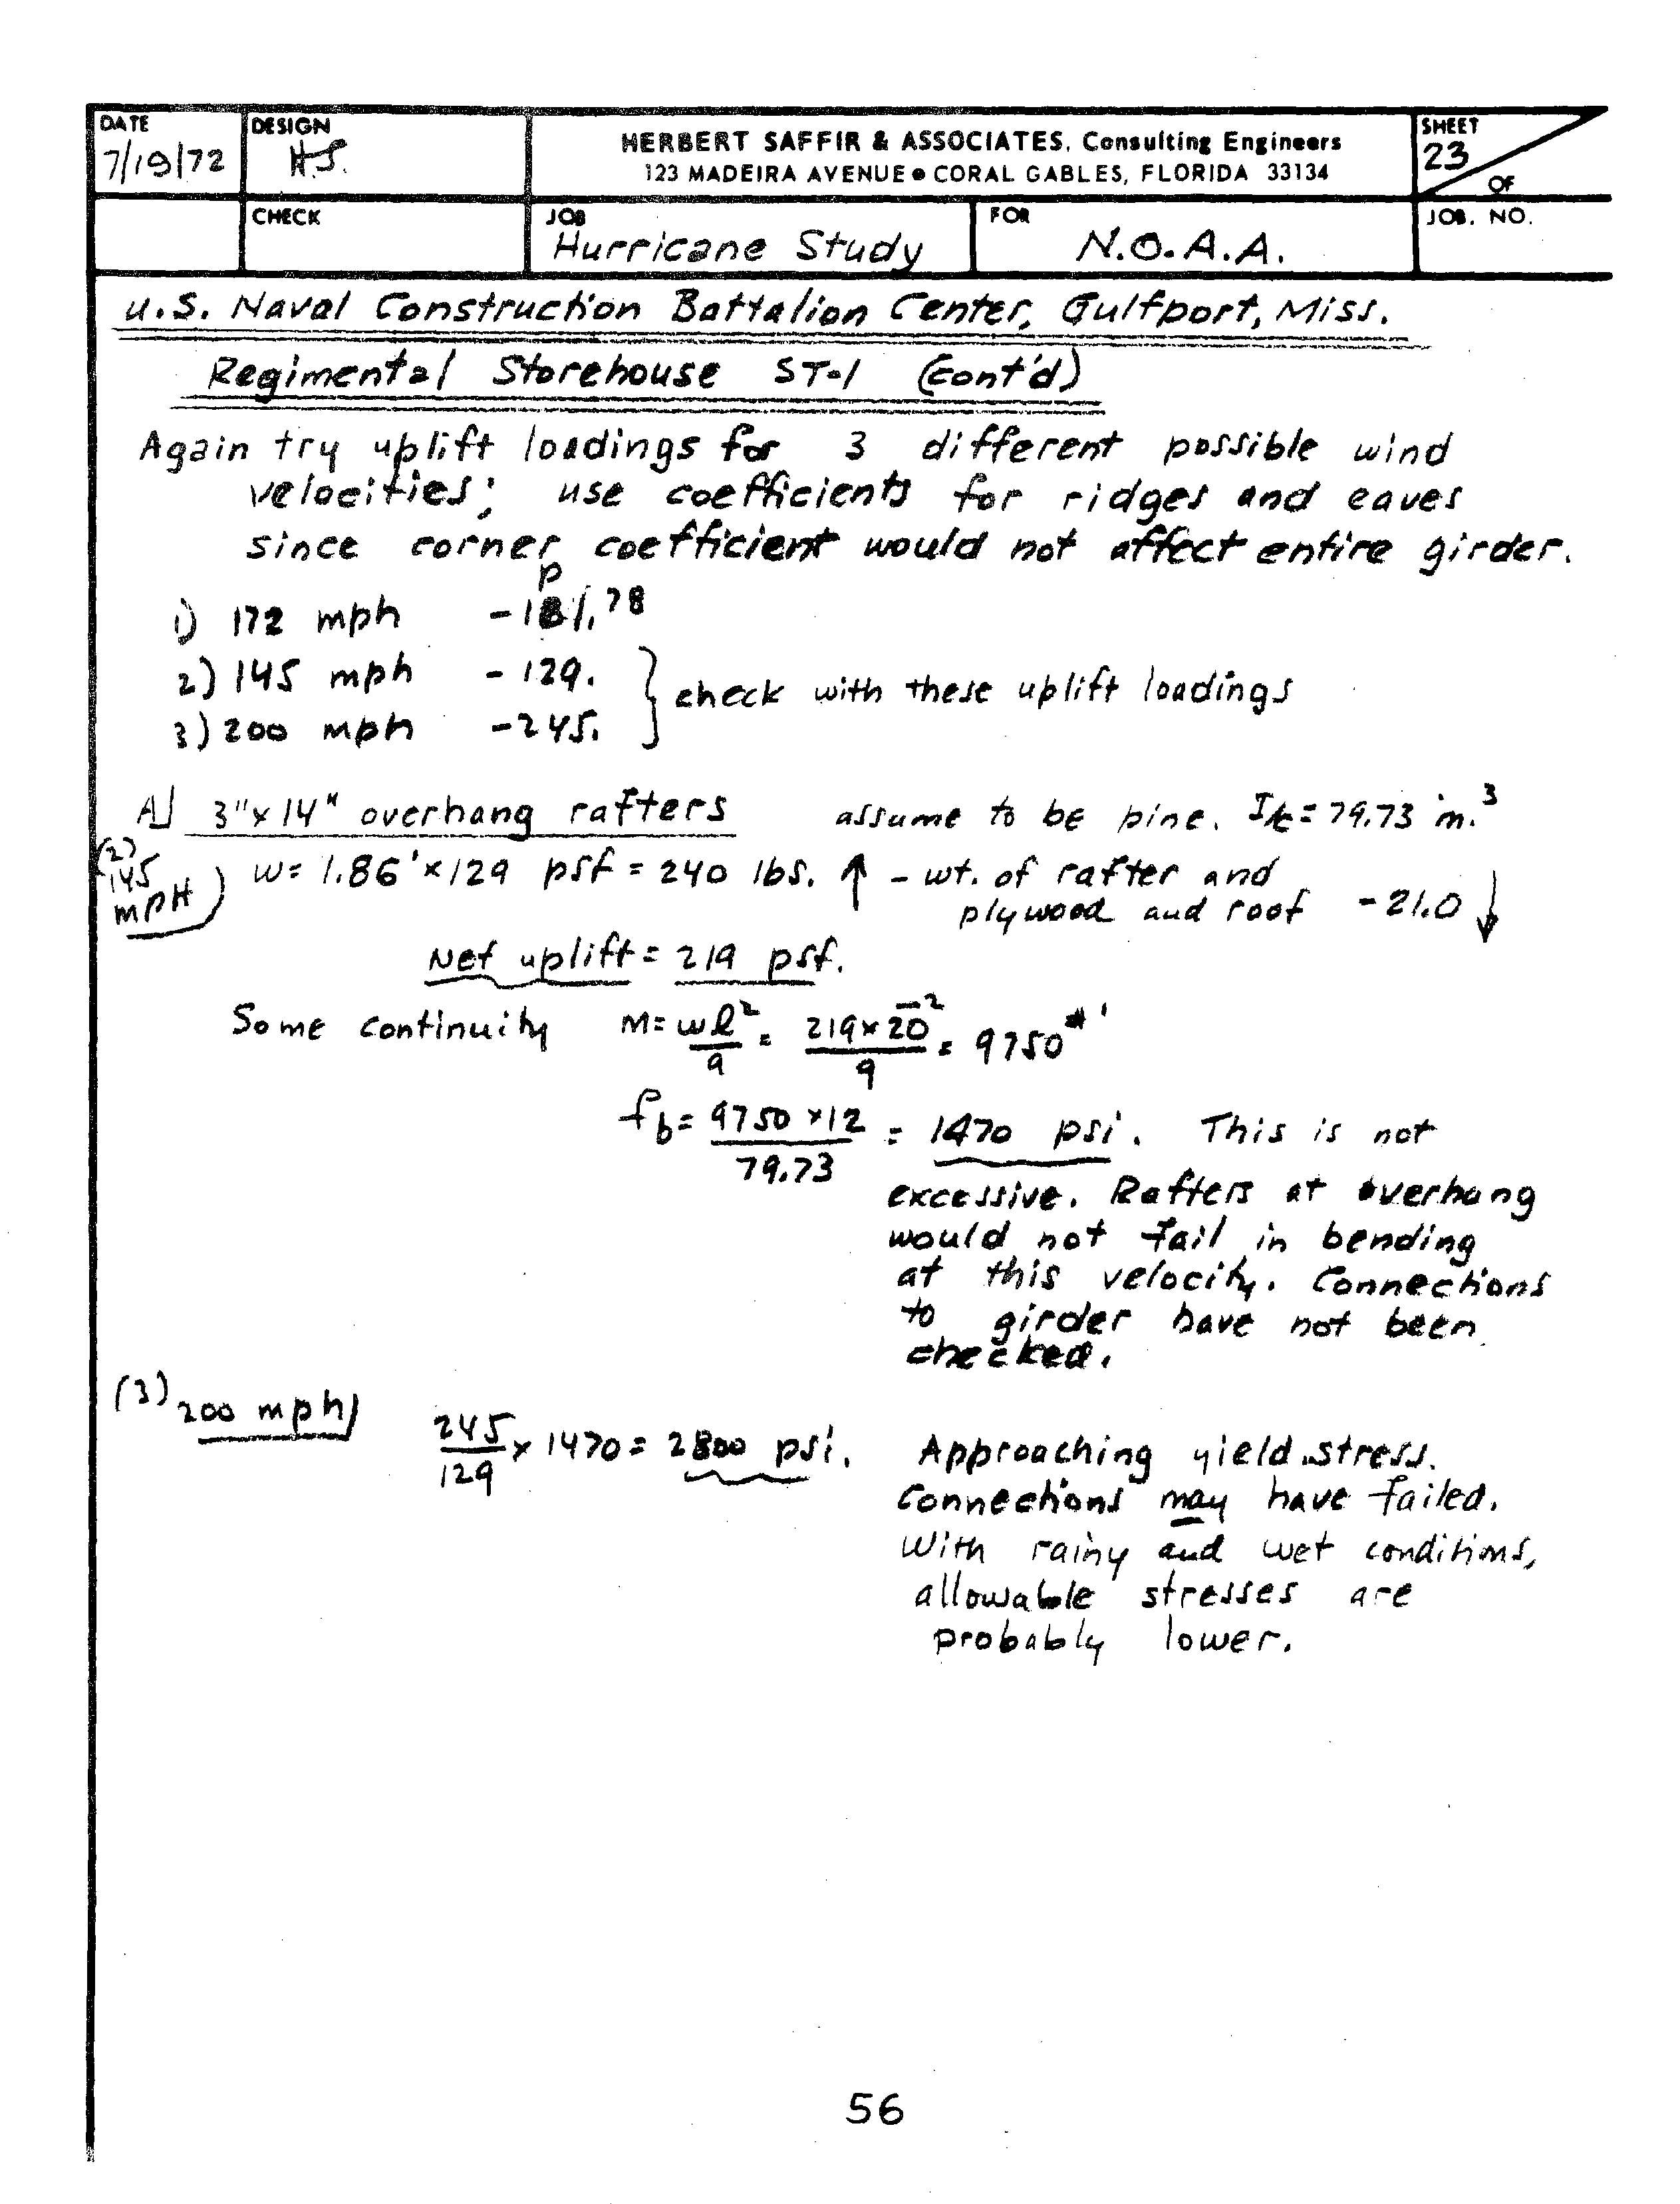 DATE DESIGN HERBERT SAFFIR & ASSOCIATES, Consulting Engineers SHEET
7/19/72 H.S. 123 MADEIRA AVENUE • CORAL GABLES, FLORIDA 33134 23 OF
CHECK JOB FOR JOB. NO.
Hurricane Study N.O.A.A.
U.S. Naval Construction Battalion Center, Gulfport, Miss.
Regimental Storehouse ST-1 (Cont'd)
Again try uplift loadings for 3 different possible wind
velocities; use coefficients for ridges and eaves
since corner coefficient would not affect entire girder.
p
1) 172 mph -181.78
2) 145 mph -129.
3) 200 mph -245.
} check with these uplift loadings
A] 3"x14" overhang rafters assume to be pine. I/c = 79.73 in.³
(2) 145 MPH) w = 1.86' x 129 psf = 240 lbs. ↑ - wt. of rafter and
plywood and roof - 21.0 ↓
Net uplift = 219 psf.
Some continuity M = wl²/9 = 219 x 20²/9 = 9750 #'
fb = 9750 x 12/79.73 = 1470 psi. This is not
excessive. Rafters at overhang
would not fail in bending
at this velocity. Connections
to girder have not been
checked.
(3) 200 mph) 245/129 x 1470 = 2800 psi. Approaching yield stress.
Connections may have failed.
With rainy and wet conditions,
allowable stresses are
probably lower.
56